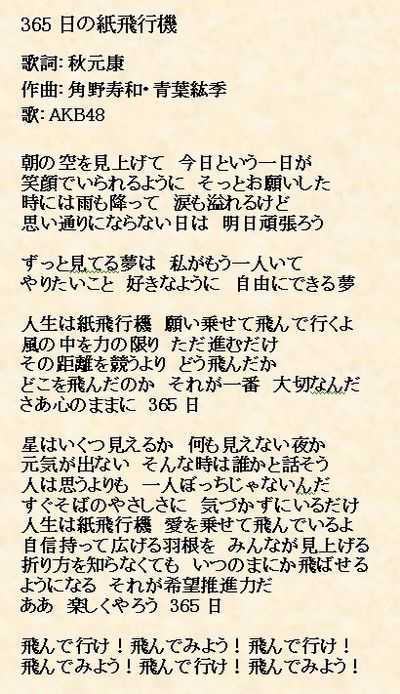 365 日の紙飛行機
歌詞：秋元康
作曲：角野寿和・青葉紘季
歌：AKB48
朝の空を見上げて　今日という一日が
笑顔でいられるように　そっとお願いした
時には雨も降って　涙も溢れるけど
思い通りにならない日は　明日頑張ろう
ずっと見てる夢は　私がもう一人いて
やりたいこと　好きなように　自由にできる夢
人生は紙飛行機　願い乗せて飛んで行くよ
風の中を力の限り　ただ進むだけ
その距離を競うより　どう飛んだか
どこを飛んだのか　それが一番　大切なんだ
さあ心のままに　365 日
星はいくつ見えるか　何も見えない夜か
元気が出ない　そんな時は誰かと話そう
人は思うよりも　一人ぼっちじゃないんだ
すぐそばのやさしさに　気づかずにいるだけ
人生は紙飛行機　愛を乗せて飛んでいるよ
自信持って広げる羽根を　みんなが見上げる
折り方を知らなくても　いつのまにか飛ばせる
ようになる　それが希望推進力だ
ああ　楽しくやろう　365 日
飛んで行け！飛んでみよう！飛んで行け！
飛んでみよう！飛んで行け！飛んでみよう！